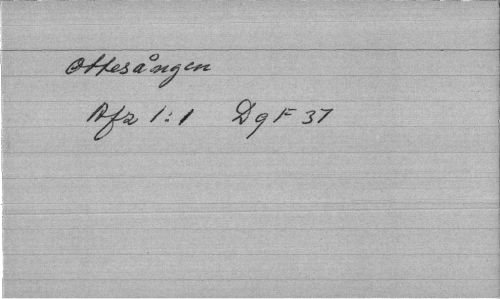 Ottesången
Afz 1:1 DgF 37